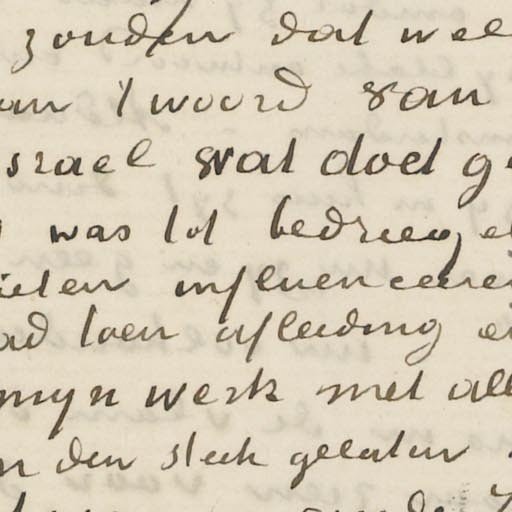 zouden dat wel
'twoord van
srael wat doet g
was tot bedrieg
influenceere
ad toen afleiding e
mijn werk met all
n den steek gelaten